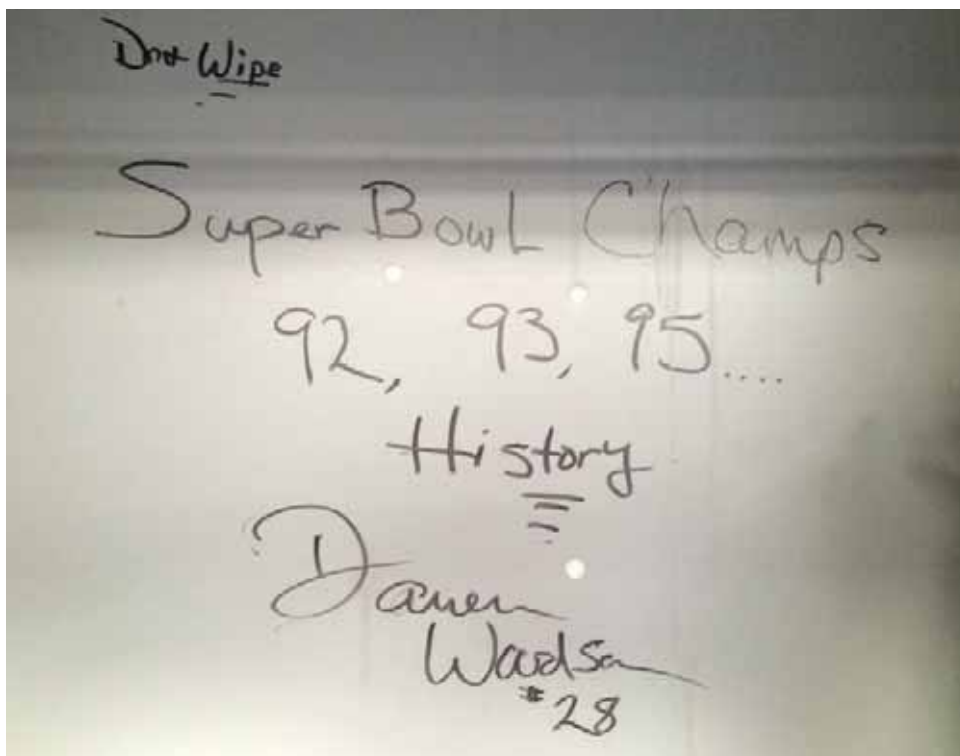 Dnt Wipe
Super Bowl Champs
92, 93, 95....
History
Darren
Woodson
#28